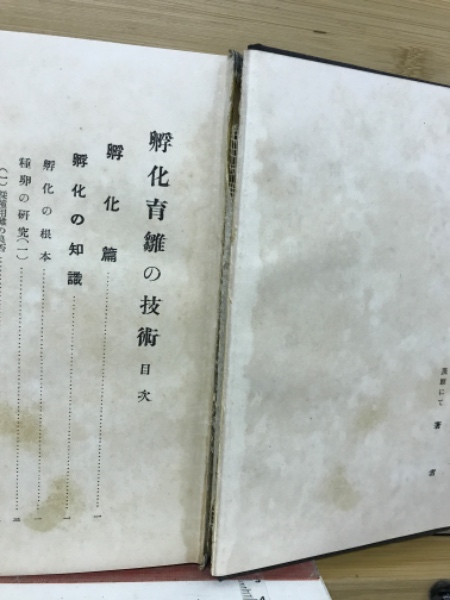 にて 著者
孵化育雛の技術 目次
孵化篇…………一
孵化の知識…………一
孵化の根本…………一
種卵の研究(一)…………
(一)